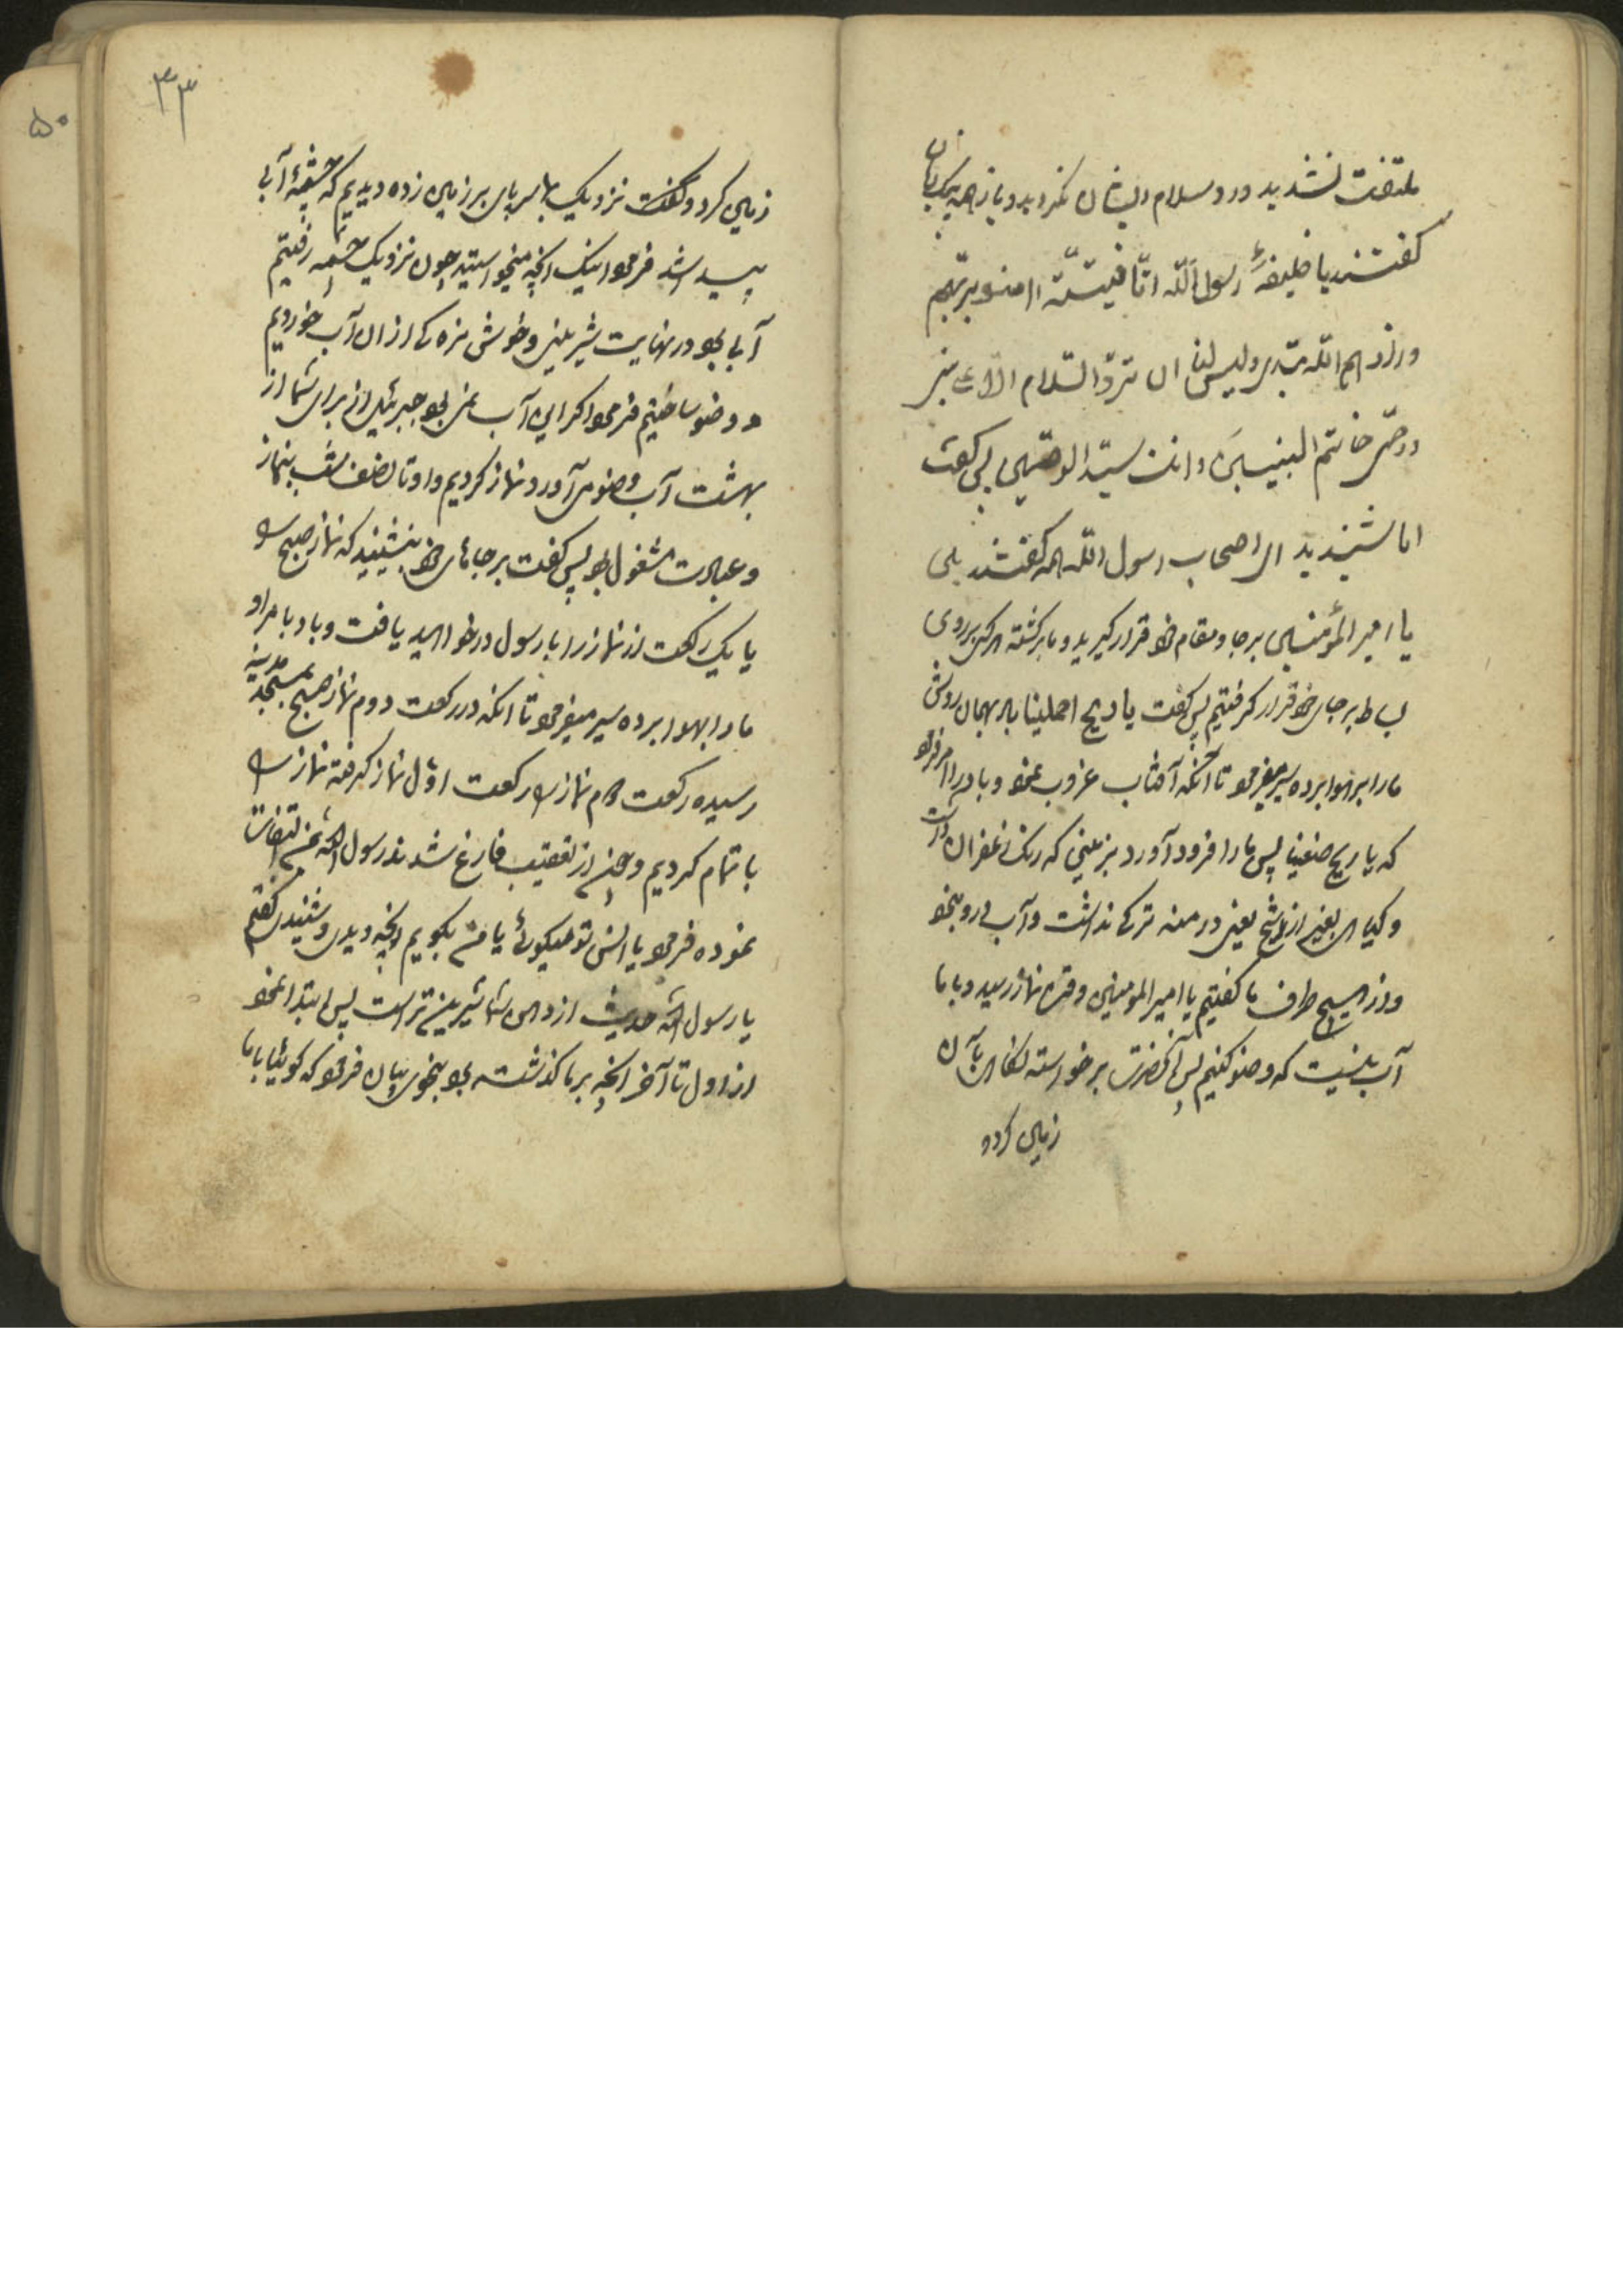 ملتفت نشدید و رد سلام ایشان نکردید و باز همه بیک زبان
گفتند یا خلیفهٔ رسول الله انّا فتیتـة امنوا بربّهم
وزادهم الله هدی ولیس لنا ان نردّ السّلام الّا علی نبی
او وصی خاتم النبیین وانت سیّد الوصیین پس گفت
اما شنیدید ای اصحاب رسول الله همه گفتند بلی
یا امیر المؤمنین بر جا و مقام خود قرار گیرید و ما برگشته هر یک بر روی
بساط بر جای خود قرار گرفتیم پس گفت یا ریح احملینا باد بهمان روش
ما را بر هوا برده سیر میفرمود تا آنکه آفتاب غروب نمود و باد را امر فرمود
که یا ریح ضعینا پس ما را فرود آورد بزمینی که رنگ زعفران داشت
و گیاهی بغیر از شیح یعنی درمنه ترکی نداشت و آب در او نبود
و از هیچ طرف ما گفتیم یا امیر المومنین وقت نماز رسید و با ما
آب نیست که وضو کنیم پس آنحضرت برخواسته نگاهی بآن
زمین کرده
۳۳
۵۰
زمین کرد و گفت نزدیک بما پس پای بر زمین زده دیدیم که چشمهٔ آبی
پیدا شد فرمود اینک آنچه میخواستید چون نزدیک چشمه رفتیم
آبی بود در نهایت شیرینی و خوش مزه کی از ان آب خوردیم
و وضو ساختیم فرمود اگر این آب نمی بود جبرئیل از برای شما از
بهشت آب وضو می آورد و نماز کردیم و او تا نصف شب بنماز
و عبادت مشغول بود پس گفت بر جاهای خود بنشینید که نماز صبح را
یا یک رکعت از نماز را با رسول در خواهید یافت و باد بامر او
ما را بهوا برده سیر میفرمود تا آنکه در رکعت دوم نماز صبح بمسجد مدینه
رسیده رکعت دوم نماز را رکعت اول نماز گرفته نماز را
با تمام کردیم و چون از تعقیب فارغ شدند رسول الله بمن التفات
نموده فرمود یا انس تو میگوئی یا من بگویم آنچه دیدی و شنیدی گفتم
یا رسول الله حدیث از دهن شما شیرین تر است پس ابتدا نمود
از اول تا آخر آنچه بر ما گذشته بود بنحوی بیان فرمود که گوئیا با ما